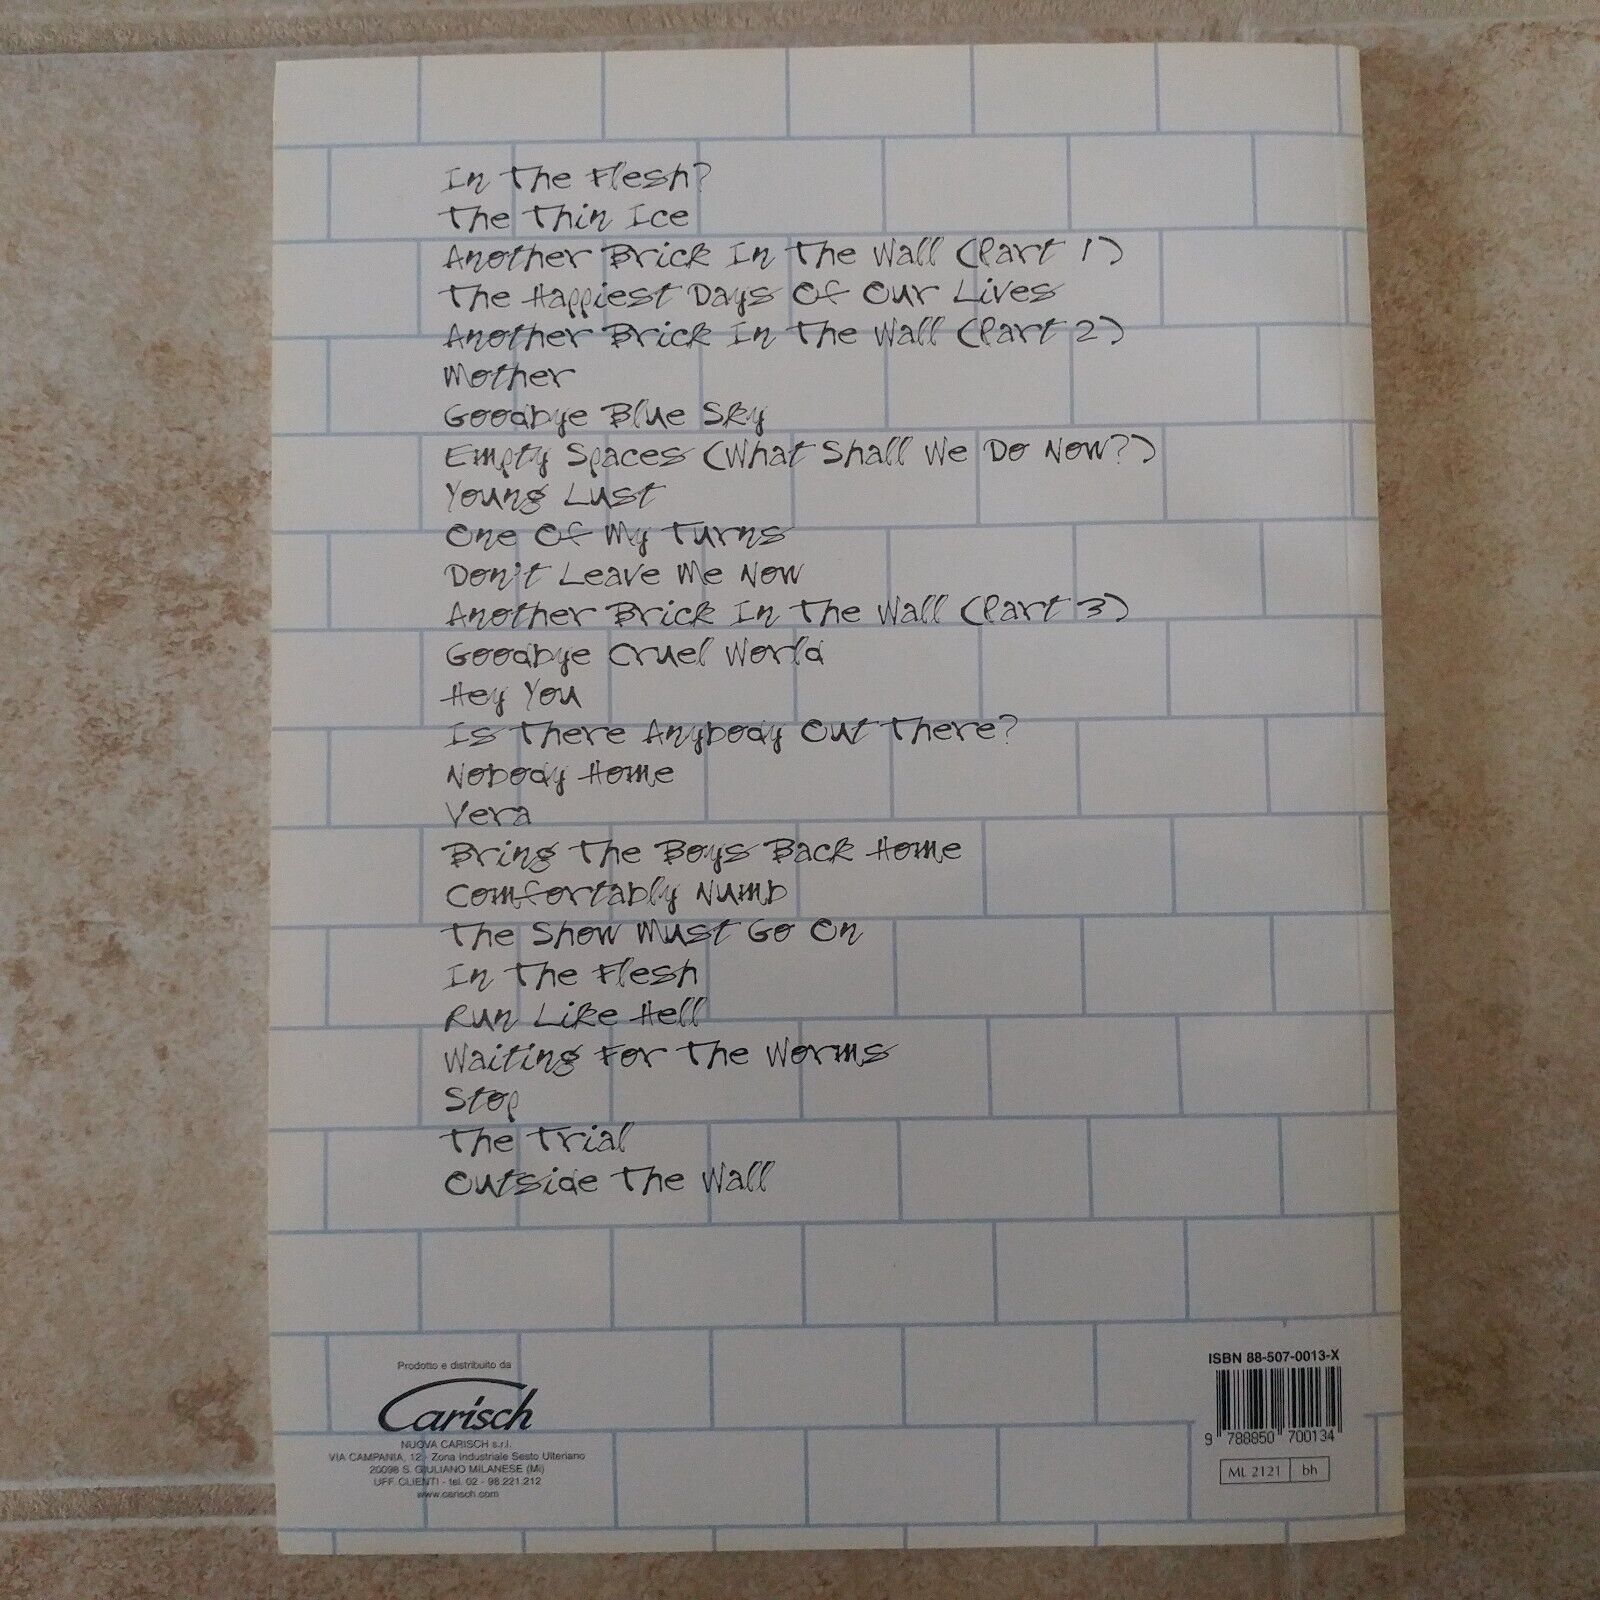 In The Flesh?
The Thin Ice
Another Brick In The Wall (Part 1)
The Happiest Days Of Our Lives
Another Brick In The Wall (Part 2)
Mother
Goodbye Blue Sky
Empty Spaces (What Shall We Do Now?)
Young Lust
One Of My Turns
Don't Leave Me Now
Another Brick In The Wall (Part 3)
Goodbye Cruel World
Hey You
Is There Anybody Out There?
Nobody Home
Vera
Bring The Boys Back Home
Comfortably Numb
The Show Must Go On
In The Flesh
Run Like Hell
Waiting For The Worms
Stop
The Trial
Outside The Wall
Prodotto e distribuito da
Carisch
NUOVA CARISCH s.r.l.
VIA CAMPANIA, 12 - Zona Industriale Sesto Ulteriano
20098 S. GIULIANO MILANESE (MI)
UFF. CLIENTI - tel. 02 - 98.221.212
www.carisch.com
ISBN 88-507-0013-X
9 788850 700134
ML 2121 bh